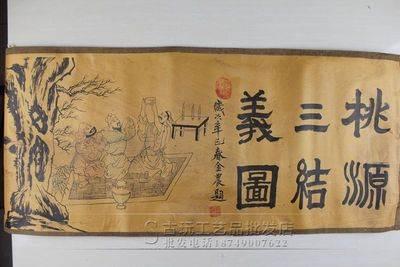 桃源
三結
義圖
歲次辛巳春金農題
古玩工艺品批发店
批发电话18749007622